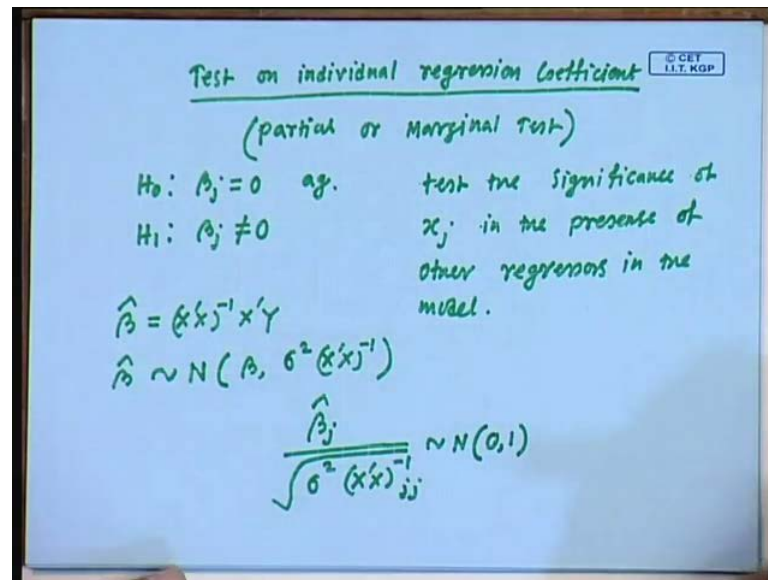 Test on individual regression Coefficient
© CET
I.I.T. KGP
(partial or Marginal Test)
H₀: βⱼ = 0 ag.
H₁: βⱼ ≠ 0
test the significance of
xⱼ in the presence of
other regressors in the
model.
β̂ = (x'x)⁻¹ x'Y
β̂ ~ N(β, σ² (x'x)⁻¹)
β̂ⱼ / √(σ² (x'x)⁻¹ⱼⱼ) ~ N(0,1)